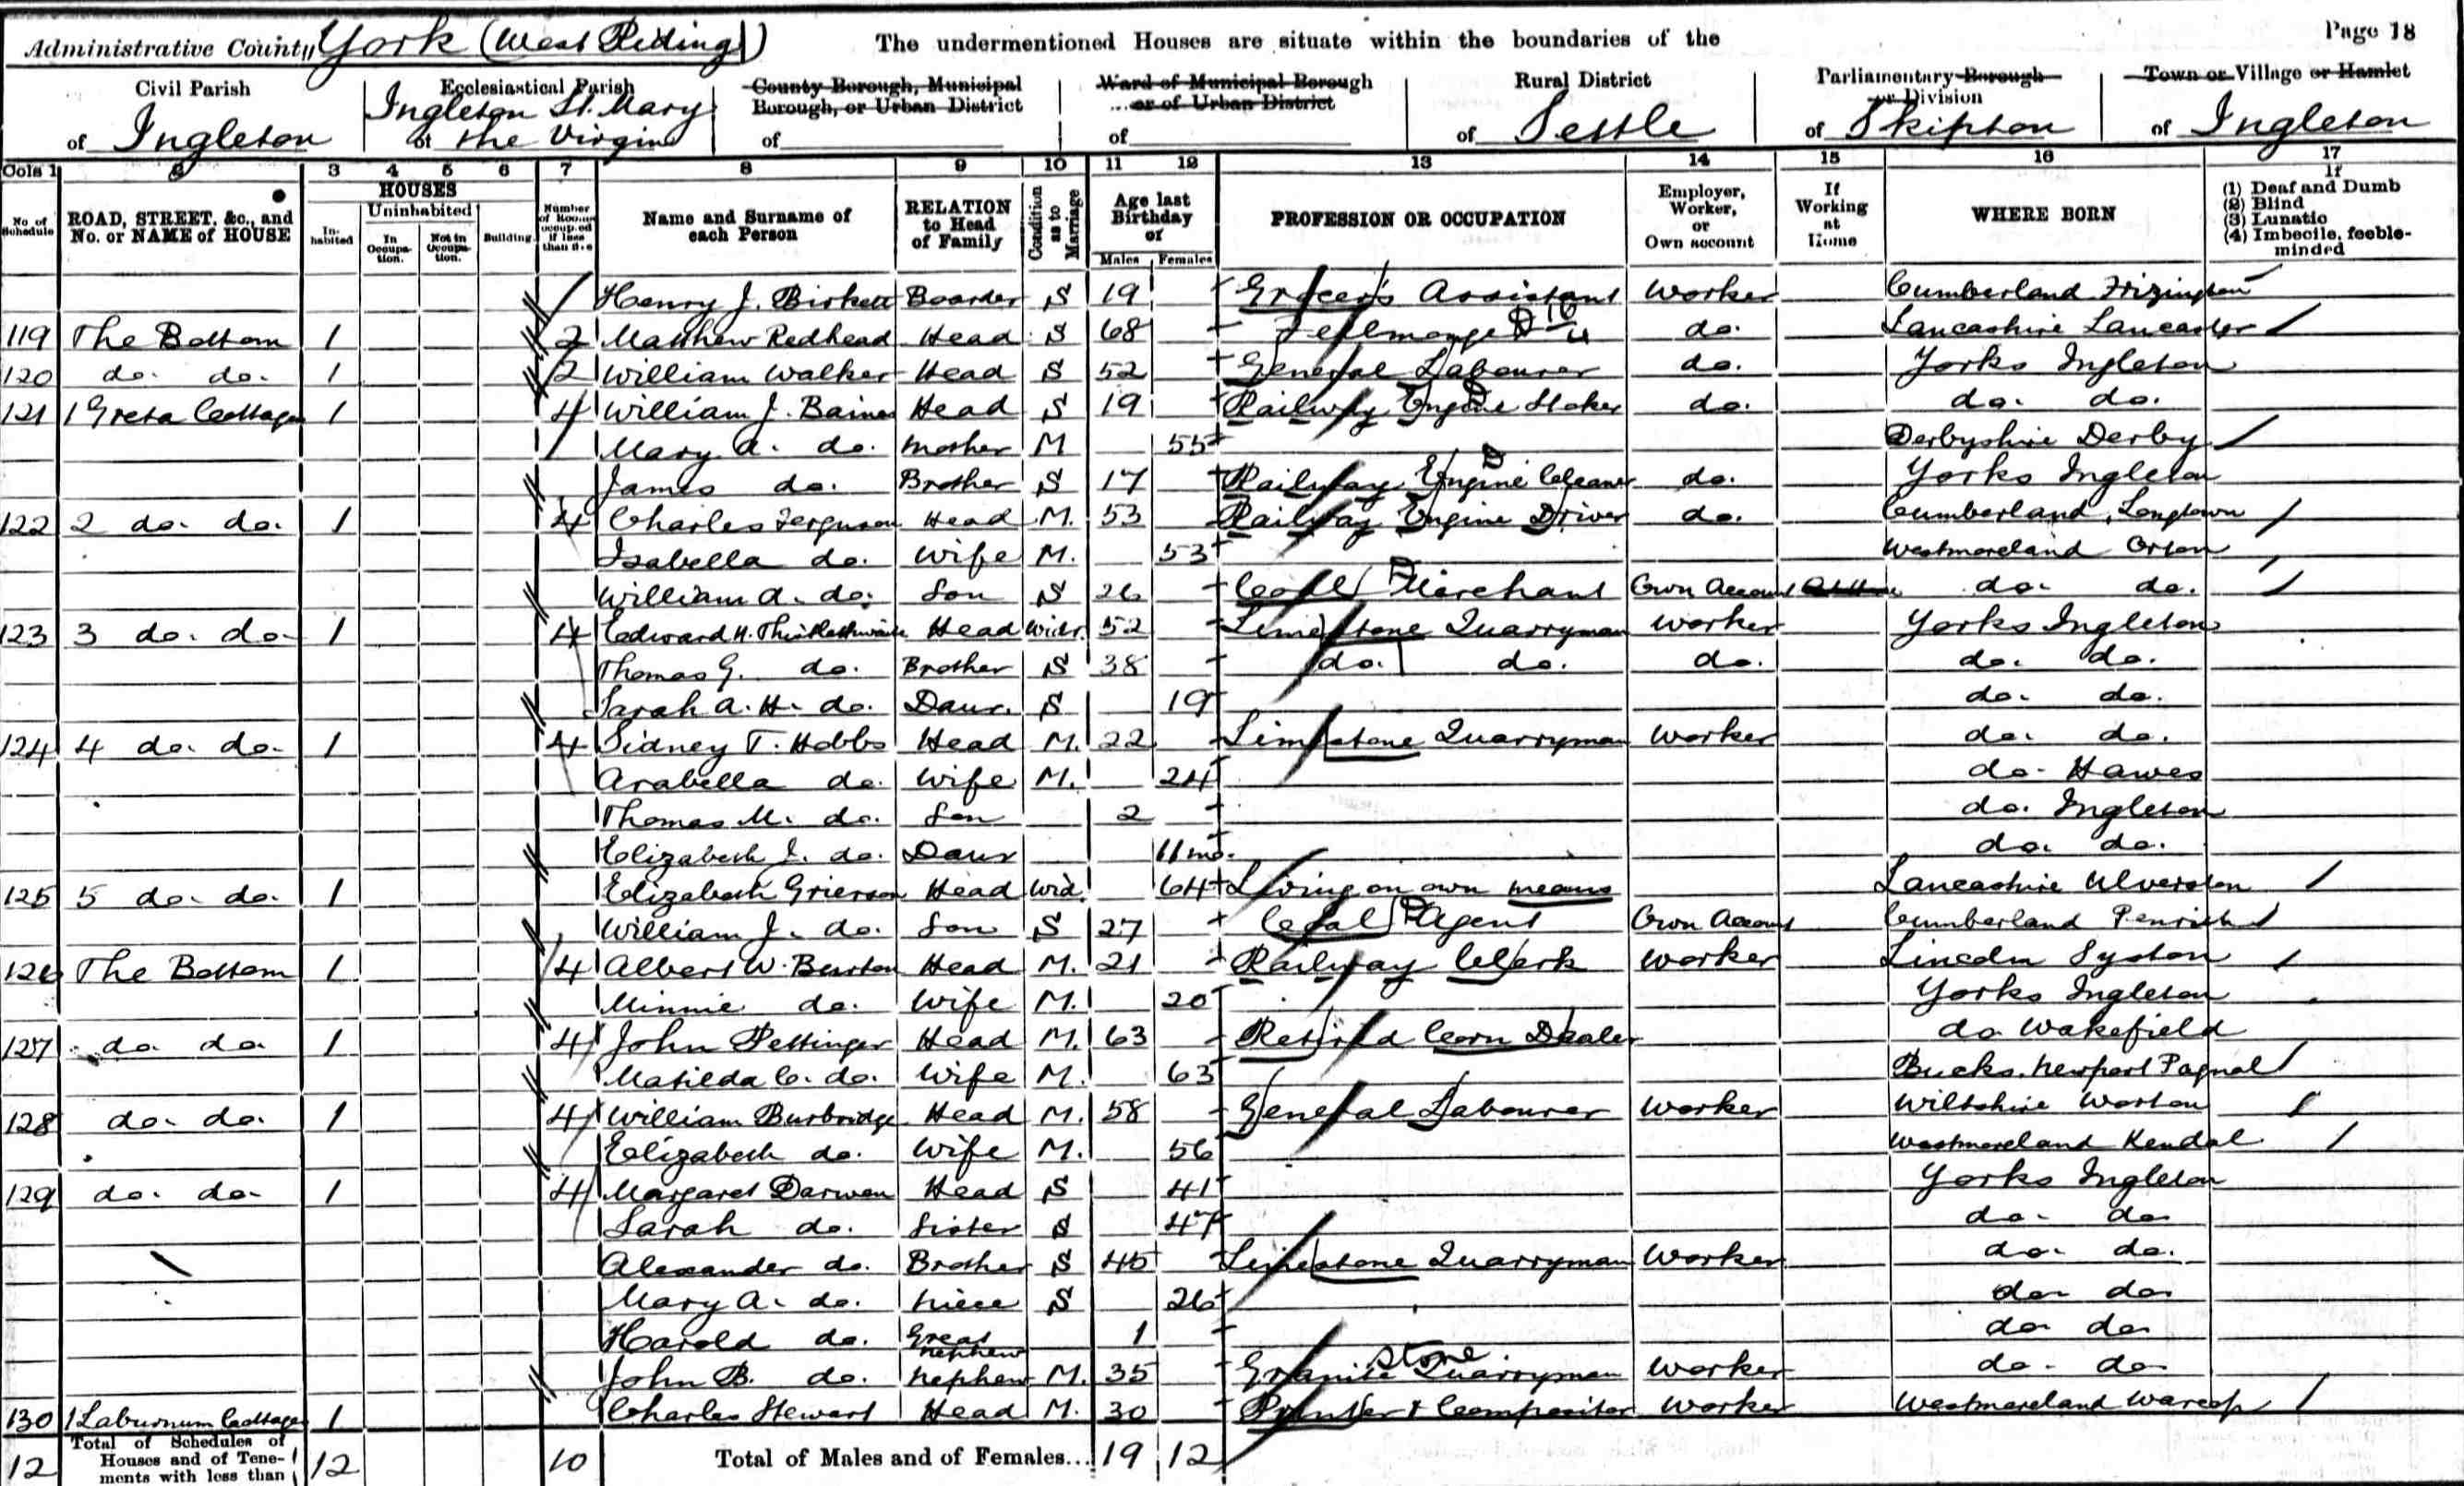 Administrative County York (West Riding) The undermentioned Houses are situate within the boundaries of the Page 18
Civil Parish Ecclesiastical Parish County Borough, Municipal Borough, or Urban District Ward of Municipal Borough or of Urban District Rural District Parliamentary Borough or Division Town or Village or Hamlet
of Ingleton Ingleton St. Mary of the Virgin of of of Settle of Skipton of Ingleton
Cols 1 2 3 4 5 6 7 8 9 10 11 12 13 14 15 16 17
No. of Schedule ROAD, STREET, &c., and No. or NAME of HOUSE HOUSES Inhabited Uninhabited In Occupation. Not in Occupation. Building Number of Rooms occupied if less than five Name and Surname of each Person RELATION to Head of Family Condition as to Marriage Age last Birthday of Males Females PROFESSION OR OCCUPATION Employer, Worker, or Own account If Working at Home WHERE BORN If (1) Deaf and Dumb (2) Blind (3) Lunatic (4) Imbecile, feeble-minded
Henry J. Birkett Boarder S 19 Grocer's Assistant Worker Cumberland Frizington
119 The Bottom 1 2 Matthew Redhead Head S 68 Fellmonger do. Lancashire Lancaster
120 do. do. 1 2 William Walker Head S 52 General Labourer do. Yorks Ingleton
121 1 Greta Cottages 1 4 William J. Baines Head S 19 Railway Engine Stoker do. do. do.
Mary A. do. Mother M 55 Derbyshire Derby
James do. Brother S 17 Railway Engine Cleaner do. Yorks Ingleton
122 2 do. do. 1 4 Charles Ferguson Head M. 53 Railway Engine Driver do. Cumberland, Longtown
Isabella do. Wife M. 53 Westmoreland Orton
William A. do. Son S 26 Coal Merchant Own Account At Home do. do.
123 3 do. do. 1 4 Edward H. Thistlethwaite Head Widr. 52 Limestone Quarryman Worker Yorks Ingleton
Thomas G. do. Brother S 38 do. do. do. do. do.
Sarah A. H. do. Daur. S 19 do. do.
124 4 do. do. 1 4 Sidney T. Hobbs Head M. 22 Limestone Quarryman Worker do. do.
Arabella do. Wife M. 24 do. Hawes
Thomas M. do. Son 2 do. Ingleton
Elizabeth J. do. Daur 11 mo. do. do.
125 5 do. do. 1 Elizabeth Grierson Head Wid. 64 Living on own means Lancashire Ulverston
William J. do. Son S 27 Coal Agent Own Account Cumberland Penrith
126 The Bottom 1 4 Albert W. Burton Head M. 21 Railway Clerk Worker Lincoln Syston
Minnie do. Wife M. 20 Yorks Ingleton
127 do. do. 1 4 John Pettinger Head M. 63 Retired Corn Dealer do Wakefield
Matilda C. do. Wife M. 63 Bucks. Newport Pagnal
128 do. do. 1 4 William Burbridge Head M. 58 General Labourer Worker Wiltshire Worton
Elizabeth do. Wife M. 56 Westmoreland Kendal
129 do. do. 1 4 Margaret Darwen Head S 41 Yorks Ingleton
Sarah do. Sister S 47 do. do
Alexander do. Brother S 45 Limestone Quarryman Worker do. do.
Mary A. do. Niece S 26 do do
Harold do. Great nephew 1 do do
John B. do. Nephew M. 35 Granite stone Quarryman Worker do. do
130 1 Laburnum Cottages 1 Charles Stewart Head M. 30 Printer & Compositor Worker Westmoreland Warcop
12 Total of Schedules of Houses and of Tenements with less than 12 10 Total of Males and of Females... 19 12